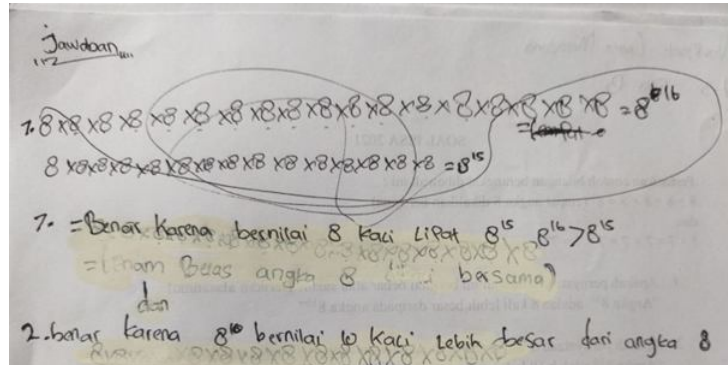 Jawaban
1. 8 x8 x8 x8 x8 x8 x8 x8 x8 x8 x8 x8 x8 x8 x8 x8 x8 x8 = 8¹⁶
8 x8x8x8x8x8x8x8x8x8x8x8x8x8x8 = 8¹⁵
1. = Benar karena bernilai 8 kali lipat 8¹⁵ 8¹⁶ > 8¹⁵
= (Enam Belas angka 8 bersama)
dan
2. benar karena 8¹⁰ bernilai 10 kali lebih besar dari angka 8